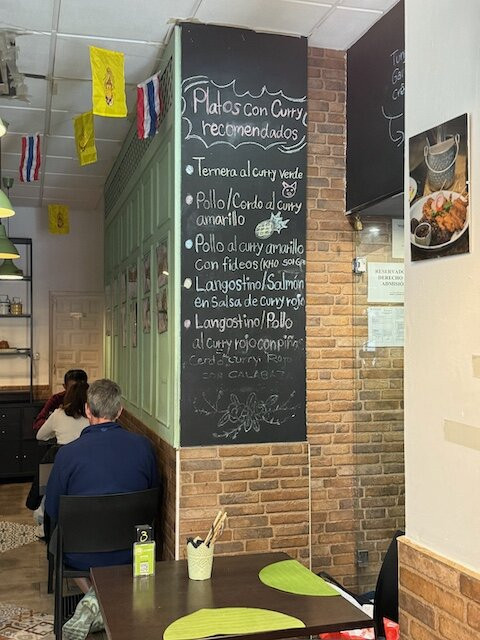 Platos con Curry
recomendados
Ternera al curry verde
Pollo/Cordo al curry
amarillo
Pollo al curry amarillo
con fideos (KHO SOI
Langostino/Salmón
en salsa de curry rojo
Langostino/Pollo
al curry rojo con piña
Cerdo curry Rojo
con CALABAZ
RESERVADO
DERECHO
ADMIS
3